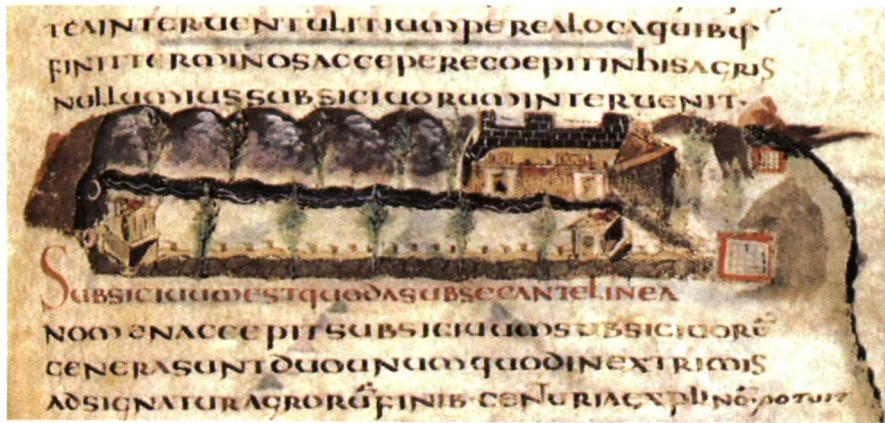 TEAINTERUENTULITIUMPEREALOCAQUIBUS
FINITTERMINOSACCEPERECOEPITINHISAGRIS
NULLUMIUSSUBSICIUORUMINTERUENIT·
SUBSICIUUMESTQUODASUBSECANTELINEA
NOMENACCEPITSUBSICIUUMSUBSICIUORU̅
GENERASUNTDUOUNUMQUODINEXTRIMIS
ADSIGNATURAGRORU̅FINIB·CENTURIAEXPLINO̅·POTUIT